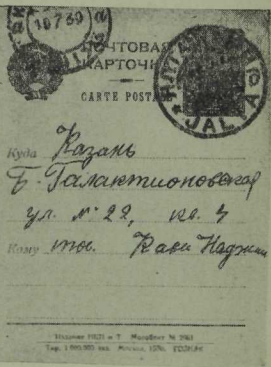 18.7.30
ПОЧТОВАЯ
КАРТОЧКА
CARTE POSTALE
JALTA
Куда Казань
Б. Галактионовская
ул. № 22, кв. 4
Кому тов. Кави Наджми